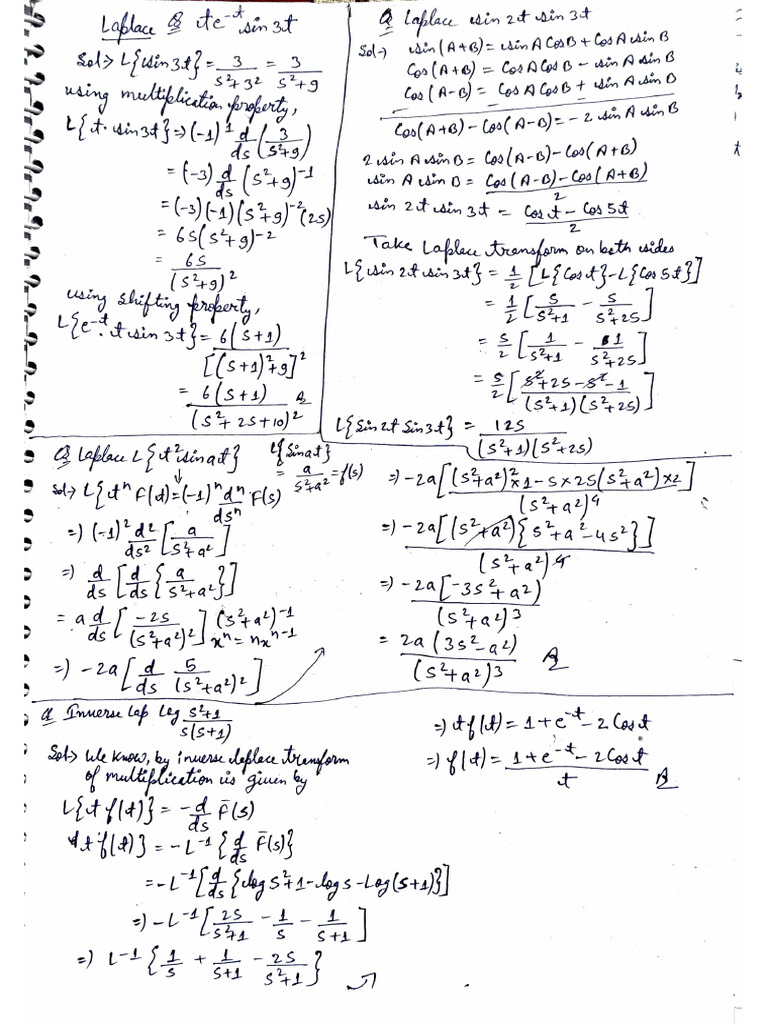 Laplace Q te^-t sin 3t
Sol-> L{sin3t} = 3/(s²+3²) = 3/(s²+9)
using multiplication property,
L{t· sin3t} => (-1)^1 d/ds (3/(s²+9))
= (-3) d/ds (s²+9)^-1
= (-3)(-1)(s²+9)^-2 (2s)
= 6s(s²+9)^-2
= 6s/(s²+9)²
using shifting property,
L{e^-t· t sin 3t} = 6(s+1)/[(s+1)²+9]²
= 6(s+1)/(s²+2s+10)² A
Q Laplace sin 2t sin 3t
Sol-> sin(A+B) = sin A cos B + Cos A sin B
Cos(A+B) = Cos A Cos B - sin A sin B
Cos(A-B) = Cos A Cos B + sin A sin B
Cos(A+B) - Cos(A-B) = -2 sin A sin B
2 sin A sin B = Cos(A-B) - Cos(A+B)
sin A sin B = (Cos(A-B) - Cos(A+B))/2
sin 2t sin 3t = (Cos t - Cos 5t)/2
Take Laplace transform on both sides
L{sin 2t sin 3t} = 1/2 [L{Cos t} - L{Cos 5t}]
= 1/2 [s/(s²+1) - s/(s²+25)]
= s/2 [1/(s²+1) - 1/(s²+25)]
= s/2 [(s²+25-s²-1)/((s²+1)(s²+25))]
L{Sin 2t Sin 3t} = 12s/((s²+1)(s²+25))
Q Laplace L{t² sin at} L{Sin at} = a/(s²+a²) = f(s)
Sol-> L{t^n F(t)} = (-1)^n d^n/ds^n F(s)
=) (-1)² d²/ds² [a/(s²+a²)]
=) d/ds [d/ds {a/(s²+a²)}]
= a d/ds [-2s/(s²+a²)²] (s²+a²)^-1
x^n = nx^n-1
=) -2a [d/ds s/(s²+a²)²]
=) -2a[(s²+a²)²×1 - s×2s(s²+a²)×2]/(s²+a²)^4
=) -2a[(s²+a²){s²+a²-4s²}]/(s²+a²)^4
=) -2a[-3s²+a²)/(s²+a²)³
= 2a(3s²-a²)/(s²+a²)³ A
Q Inverse Lap Log (s²+1)/(s(s+1))
Sol-> We know, by inverse laplace transform
of multiplication is given by
L{t f(t)} = -d/ds F̄(s)
t f(t)} = -L^-1 {d/ds F̄(s)}
= -L^-1 [d/ds {log s²+1 - log s - Log(s+1)}]
=) -L^-1 [2s/(s²+1) - 1/s - 1/(s+1)]
=) L^-1 {1/s + 1/(s+1) - 2s/(s²+1)}
=) t f(t) = 1+e^-t - 2 Cos t
=) f(t) = (1+e^-t - 2 Cos t)/t A